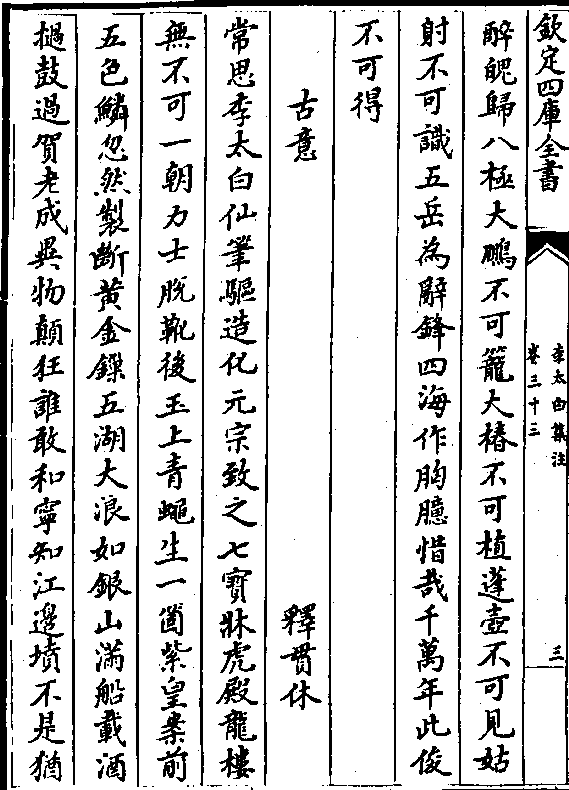 欽定四庫全書
李太白集注
卷三十三
三
醉魄歸八極大鵬不可籠大椿不可植蓬壺不可見姑
射不可識五岳為辭鋒四海作胸臆惜哉千萬年此俊
不可得
古意
釋貫休
常思李太白仙筆驅造化元宗致之七寶牀虎殿龍樓
無不可一朝力士脫靴後玉上青蠅生一箇紫皇案前
五色鱗忽然掣斷黃金鏁五湖大浪如銀山滿船載酒
撾鼓過賀老成異物顛狂誰敢和寧知江邊墳不是猶